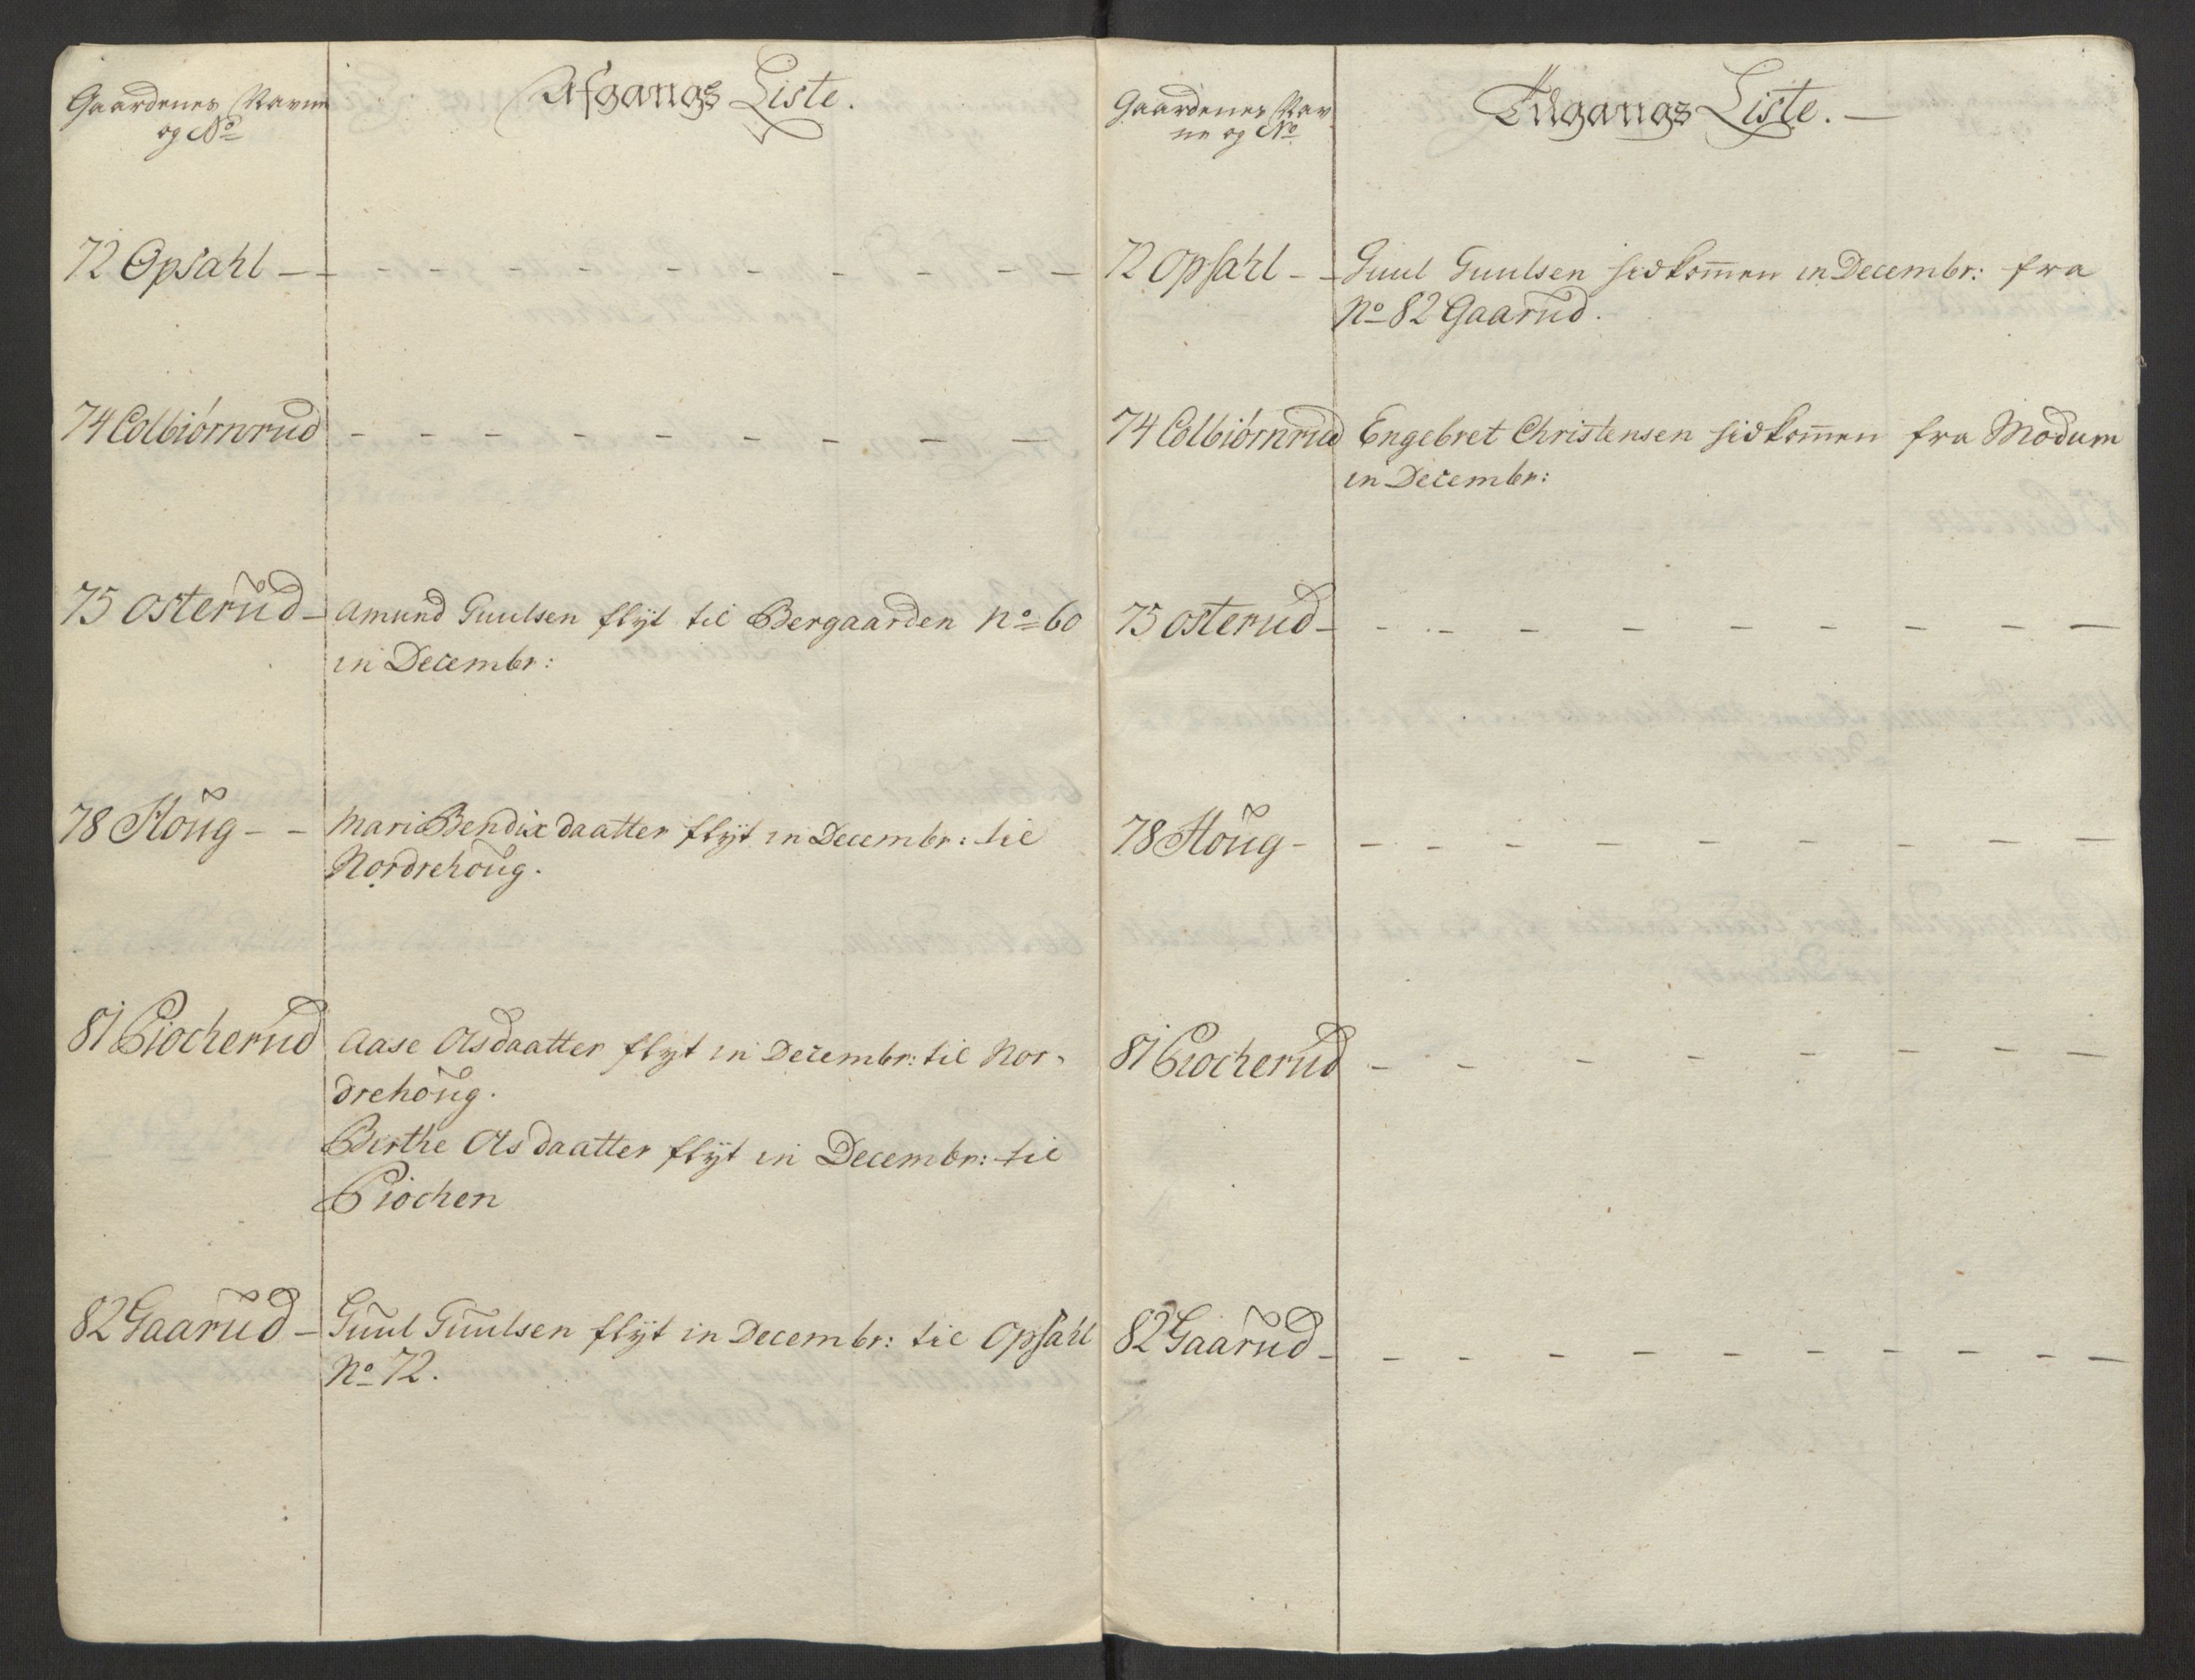 Gaardenes Navne
og No
Afgangs Liste.
72 Opsahl - - - - - - - - - - -
74 Colbiørnrud - - - - - - - - -
75 osterud - Amund Guulsen flÿt til Bergaarden No 60
in Decembr:
78 Houg - - Mari Bendix daatter flÿt in Decembr: til
Nordrehoug.
81 Kiocherud Aase Olsdaatter flÿt in Decembr: til Nor-
drehoug.
Birthe Olsdaatter flÿt in Decembr: til
Kiochen
82 Gaarud - Guul Guulsen flÿt in Decembr: til Opsahl
No 72.
Gaardenes Nav
ne og No
Tilgangs Liste. -
72 Opsahl - - Guul Guulsen hidkom̄en in Decembr: fra
No 82 Gaarud.
74 Colbiørnrud Engebret Christensen hidkom̄en fra Modum
in Decembr:
75 osterud - - - - - - - - - -
78 Houg - - - - - - - - - -
81 Kiocherud - - - - - - - -
82 Gaarud - - - - - - - - - -